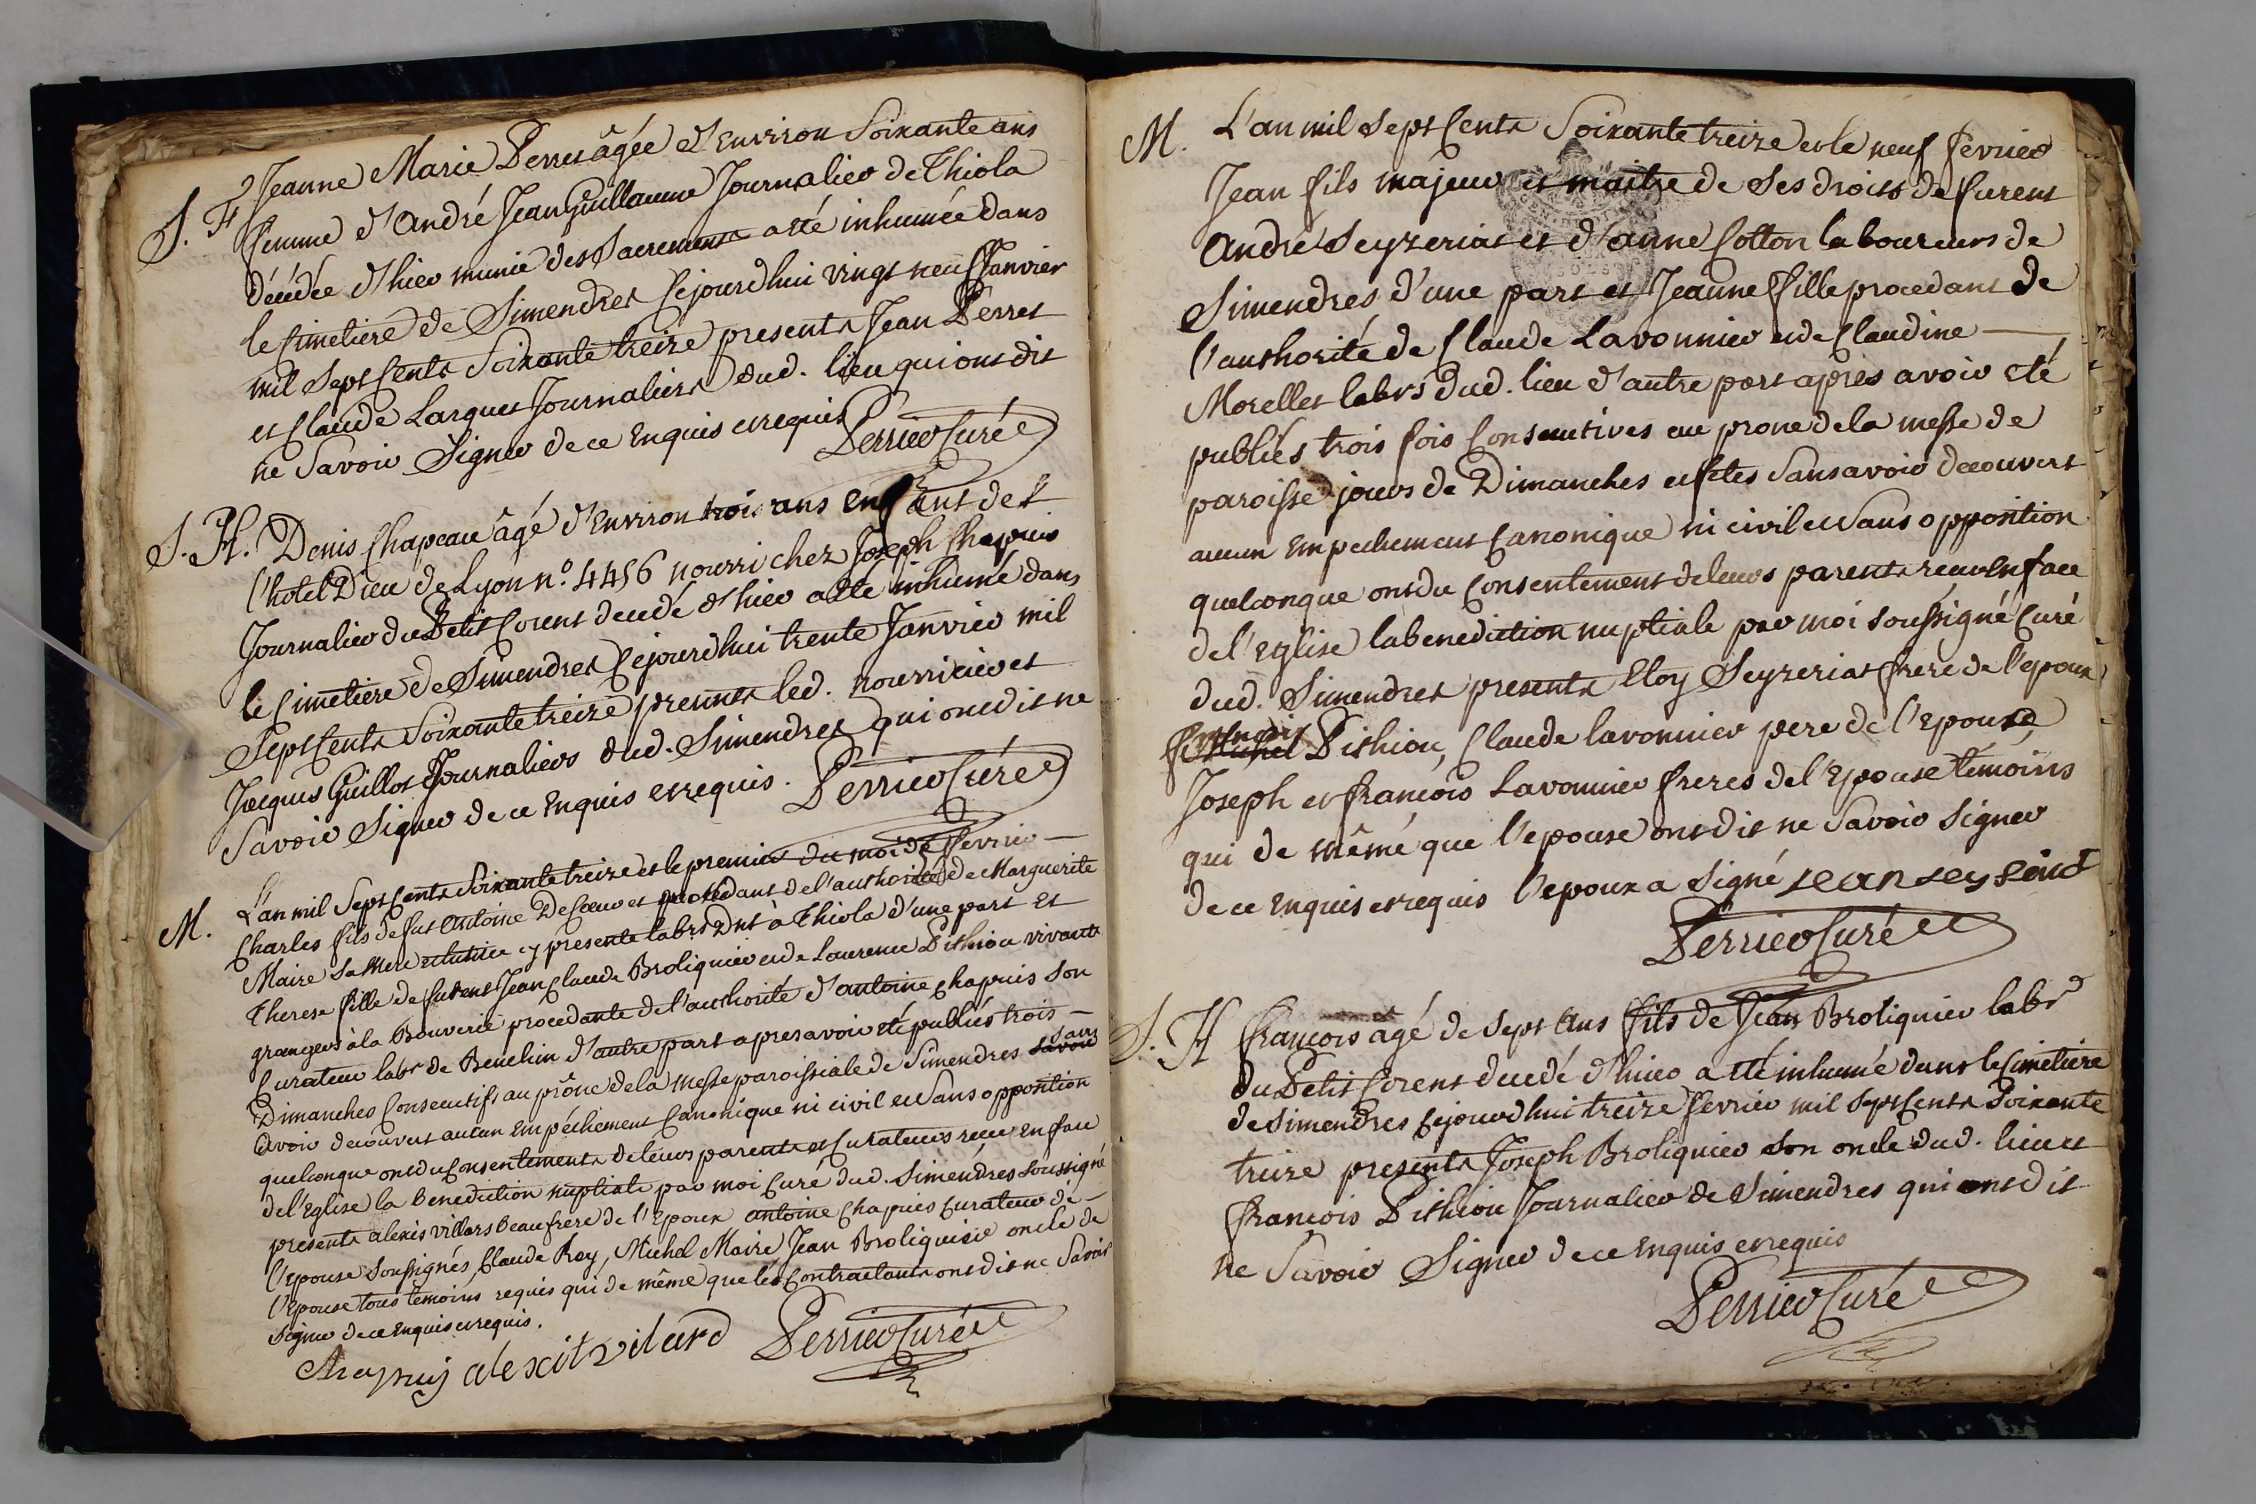 S. F Jeanne Marie Perret âgée d'Environ Soixante ans
femme d'André Jean Guillaume Journalier de Thiola
décédée d'hier munie des Sacrements a eté inhumée dans
le Cimetiere de Simendres Cejourdhui vingt neuf Janvier
mil Sept Cents Soixante treize presents Jean Perret
et Claude Larguet Journaliers dud. lieu qui ont dit
ne Savoir Signer de ce Enquis et requis
Perrier Curé
S. H. Denis Chapeau âgé d'Environ trois ans Enfant de
l'hotel Dieu de Lyon n.º 4456 nourri chez Joseph Chapuis
Journalier du Petit Corent decedé d'hier a eté inhumé dans
le Cimetiere de Simendres Cejourdhui trente Janvier mil
Sept Cents Soixante treize presents led. nourricier et
Jacques Guillot Journaliers dud. Simendres qui ont dit ne
Savoir Signer de ce Enquis et requis. Perrier Curé
M. L'an mil Sept Cents Soixante treize et le premier du moi de fevrier
Charles fils de fut Antoine Decœur et procedant de l'authorité de Marguerite
Maire Sa Mere et tutrice cy presente labrs Dnt à Thiola d'une part Et
Therese fille de furent Jean Claude Broliquier et de Laurence Pithiou vivants
grangers à la Bouverie procedante de l'authorité d'antoine chapuis Son
Curateur labr de Beuchin d'autre part apres avoir eté publiés trois
Dimanches Consecutifs au prône de la Messe paroissiale de Simendres sans
avoir decouvert aucun Empéchement Canonique ni civil et Sans opposition
quelconque ont du Consentements de leurs parents et Curateurs recu en face
de l'Eglise la benediction nuptiale par moi Curé dud. Simendres Soussigné
presents alexis villars beaufrere de l'Epoux antoine Chapuis Curateur de
l'epouse Soussignés, Claude Roy, Michel Maire Jean Broliquier oncle de
l'Epouse tous temoins requis qui de même que les Contractants ont dit ne Savoir
Signer de ce Enquis et requis.
Chapuis alexit vilard Perrier Curé
M. L'an mil Sept Cents Soixante treize et le neuf fevrier
Jean fils majeur et maitre de Ses droits de furent
André Seyzeriat et d'anne Cotton laboureurs de
Simendres d'une part et Jeanne fille procedant de
l'authorité de Claude Lavonnier et de Claudine
Morellet labrs dud. lieu d'autre part après avoir eté
publiés trois fois Consecutives au prone de la messe de
paroisse jours de Dimanches et fêtes Sans avoir decouvert
aucun Empechement Canonique ni civil et Sans opposition
quelconque ont du Consentement de leurs parents recu en face
de l'Eglise la benediction nuptiale par moi soussigné Curé
dud. Simendres presents Eloy Seyzeriat frere de l'epoux
francois Pithiou, Claude lavonnier pere de l'epouse
Joseph et francois Lavonnier freres de l'Epouse témoins
qui de même que l'epouse ont dit ne Savoir Signer
de ce Enquis et requis l'epoux a Signé jean seyseriat
Perrier Curé
S. H francois agé de Sept Ans fils de Jean Broliquier labr
du Petit Corent decedé d'hier a eté inhumé dans le Cimetiere
de Simendres Cejourdhui treize fevrier mil Sept Cents Soixante
treize presents Joseph Broliquier Son oncle dud. lieu et
francois Pithiou Journalier de Simendres qui ont dit
ne Savoir Signer de ce Enquis et requis
Perrier Curé